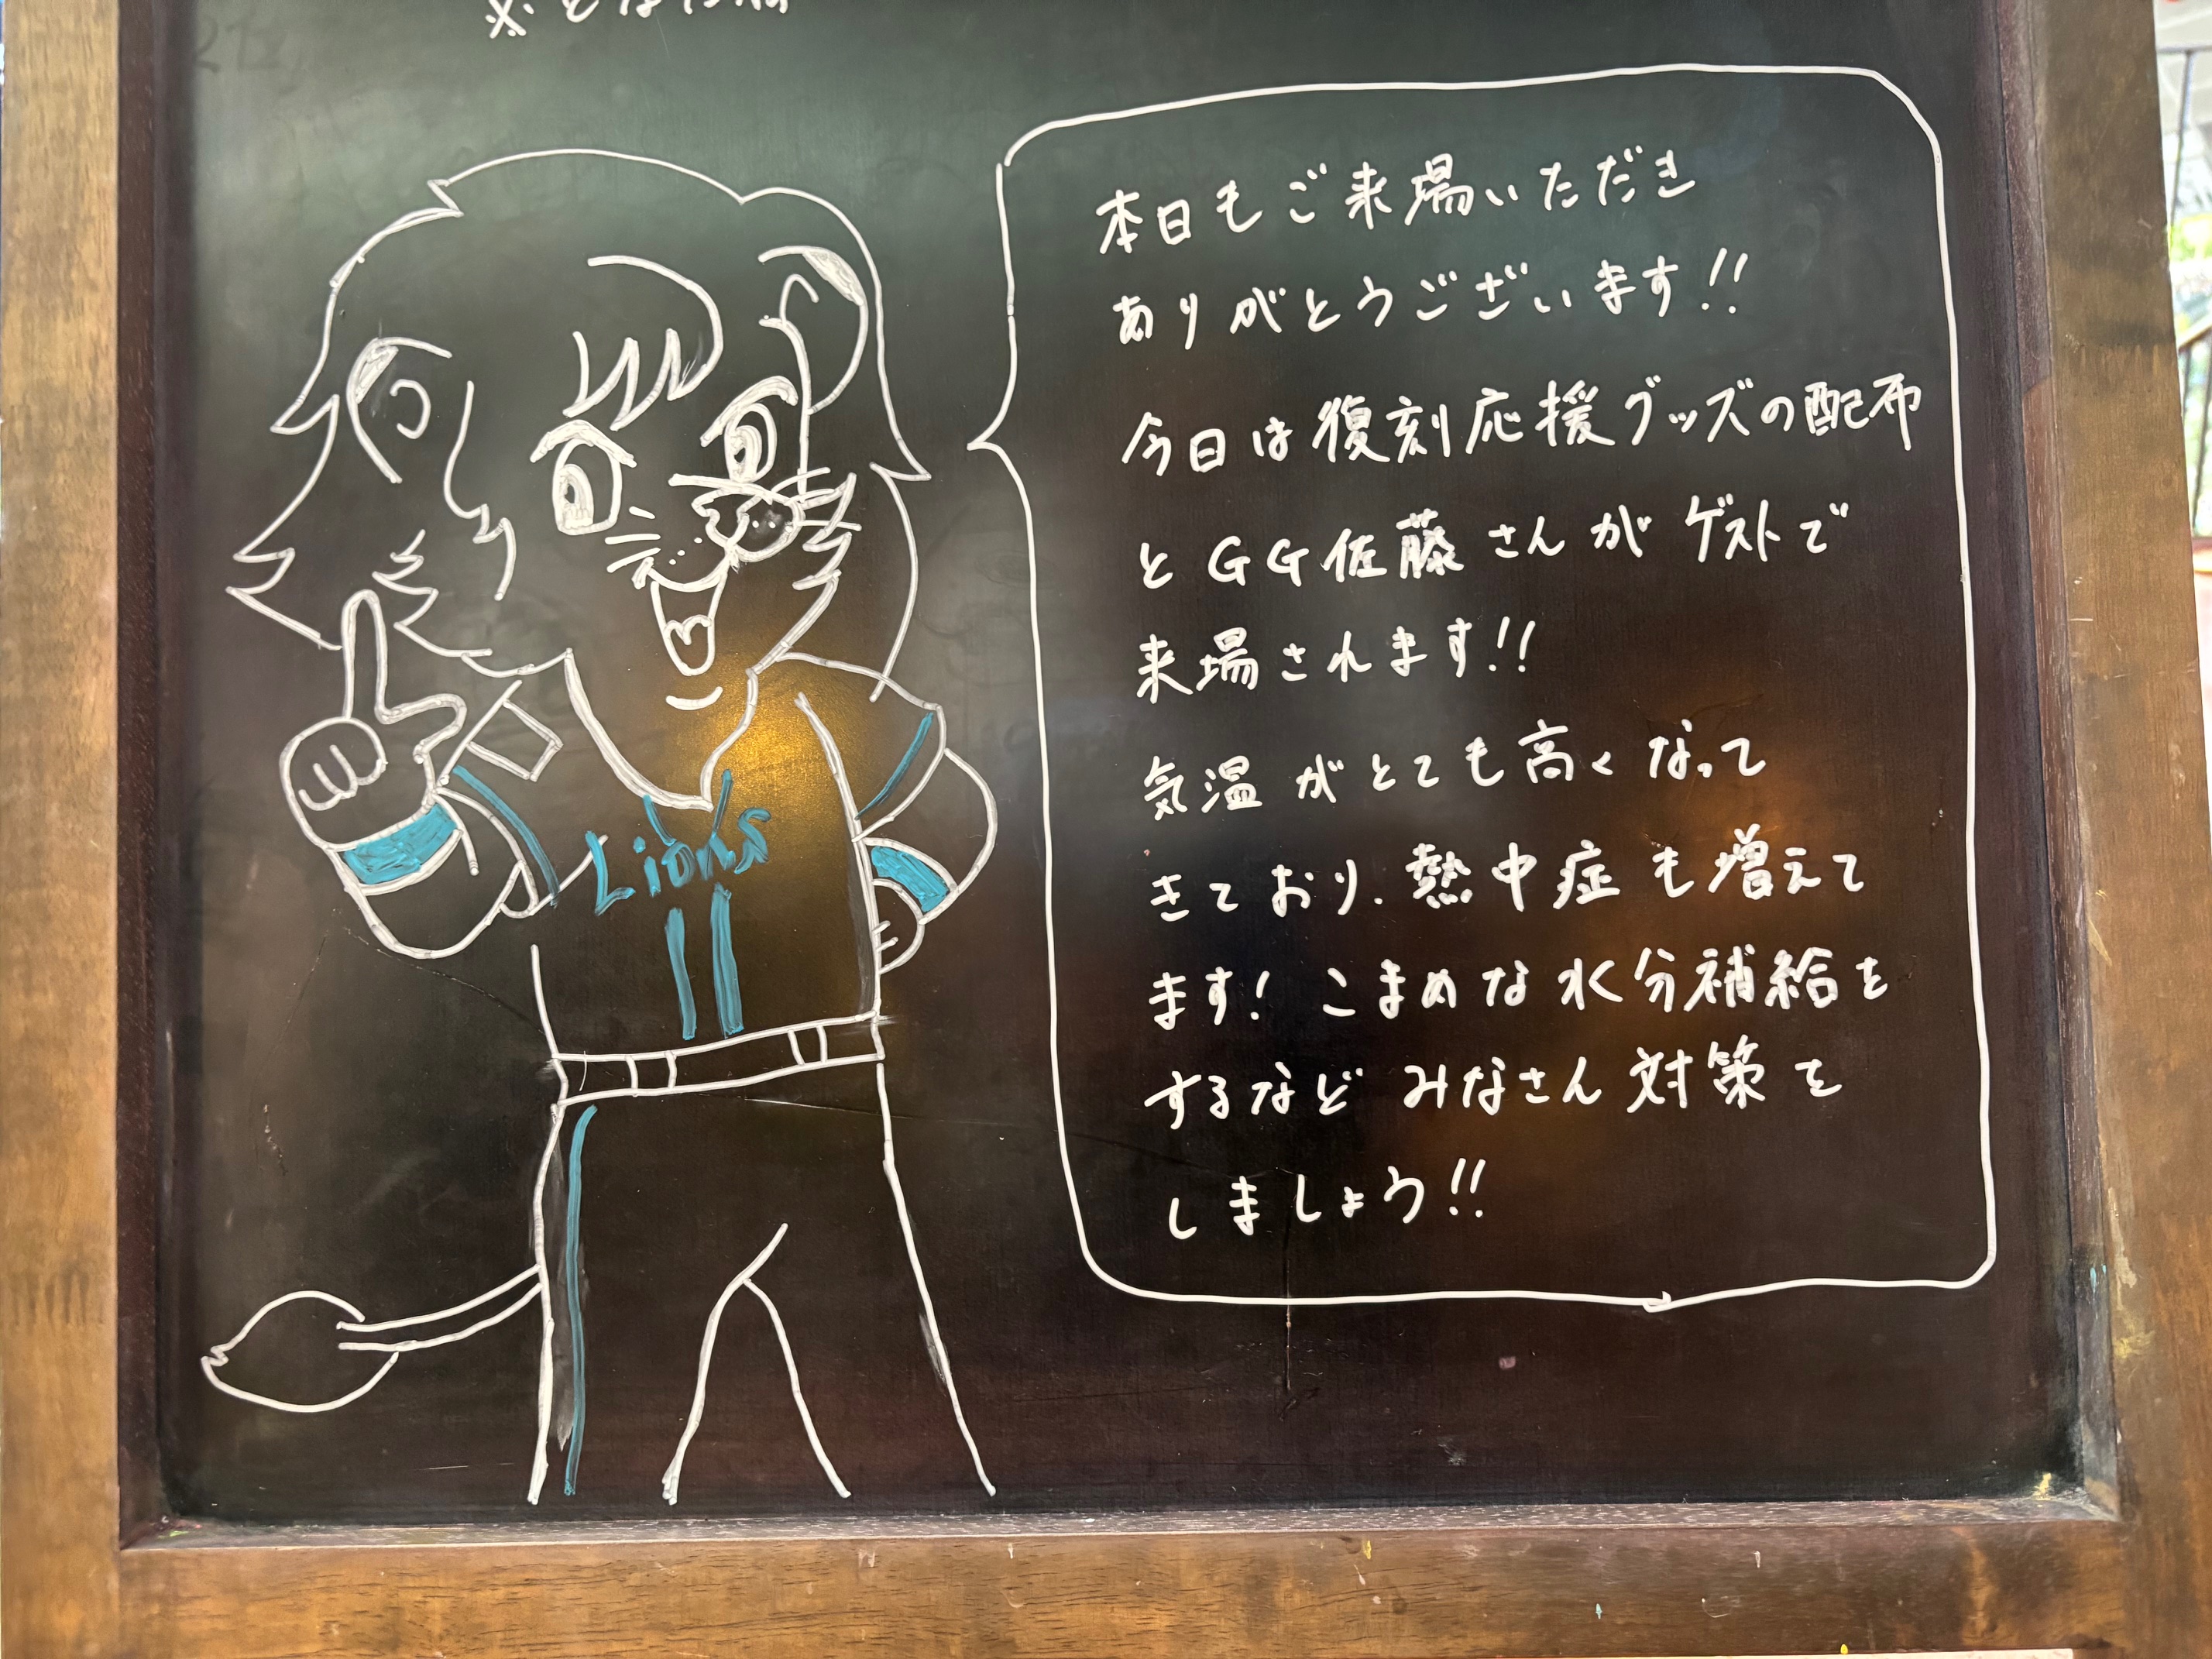 本日もご来場いただき
ありがとうございます!!
今日は復刻応援グッズの配布
とGG佐藤さんがゲストで
来場されます!!
気温がとても高くなって
きており、熱中症も増えて
ます! こまめな水分補給を
するなどみなさん対策を
しましょう!!
Lions